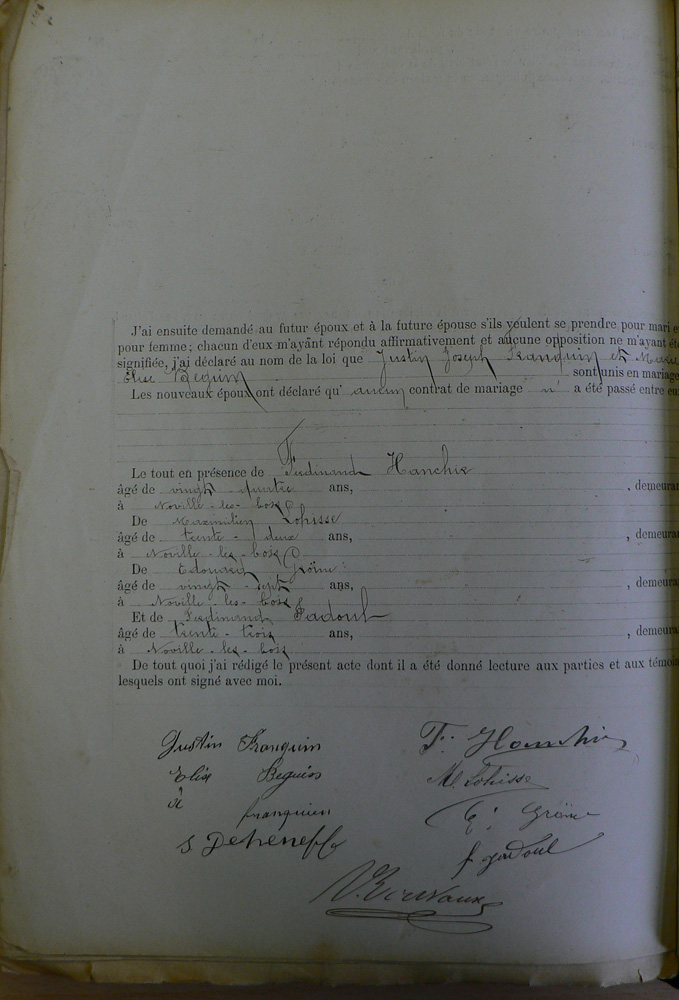 J'ai ensuite demandé au futur époux et à la future épouse s'ils veulent se prendre pour mari e
pour femme; chacun d'eux m'ayant répondu affirmativement et aucune opposition ne m'ayant ét
signifiée, j'ai déclaré au nom de la loi que Justin Joseph Franquin et Marie
Elise Bequin sont unis en mariage
Les nouveaux époux ont déclaré qu' aucun contrat de mariage n' a été passé entre eu
Le tout en présence de Ferdinand
âgé de vingt quatre ans, , demeura
à Noville-les-bois
De Maximilien Lohisse
âgé de trente-deux ans, , demeura
à Noville-les-bois
De Edouard Groïne
âgé de vingt-sept ans, , demeura
à Noville-les-bois
Et de Ferdinand Jadoul
âgé de trente-trois ans, , demeura
à Noville-les-bois
De tout quoi j'ai rédigé le présent acte dont il a été donné lecture aux parties et aux témoin
lesquels ont signé avec moi.
Justin Franquin
Elise
franquien
M. Lohisse
E. Groïne
f jadoul